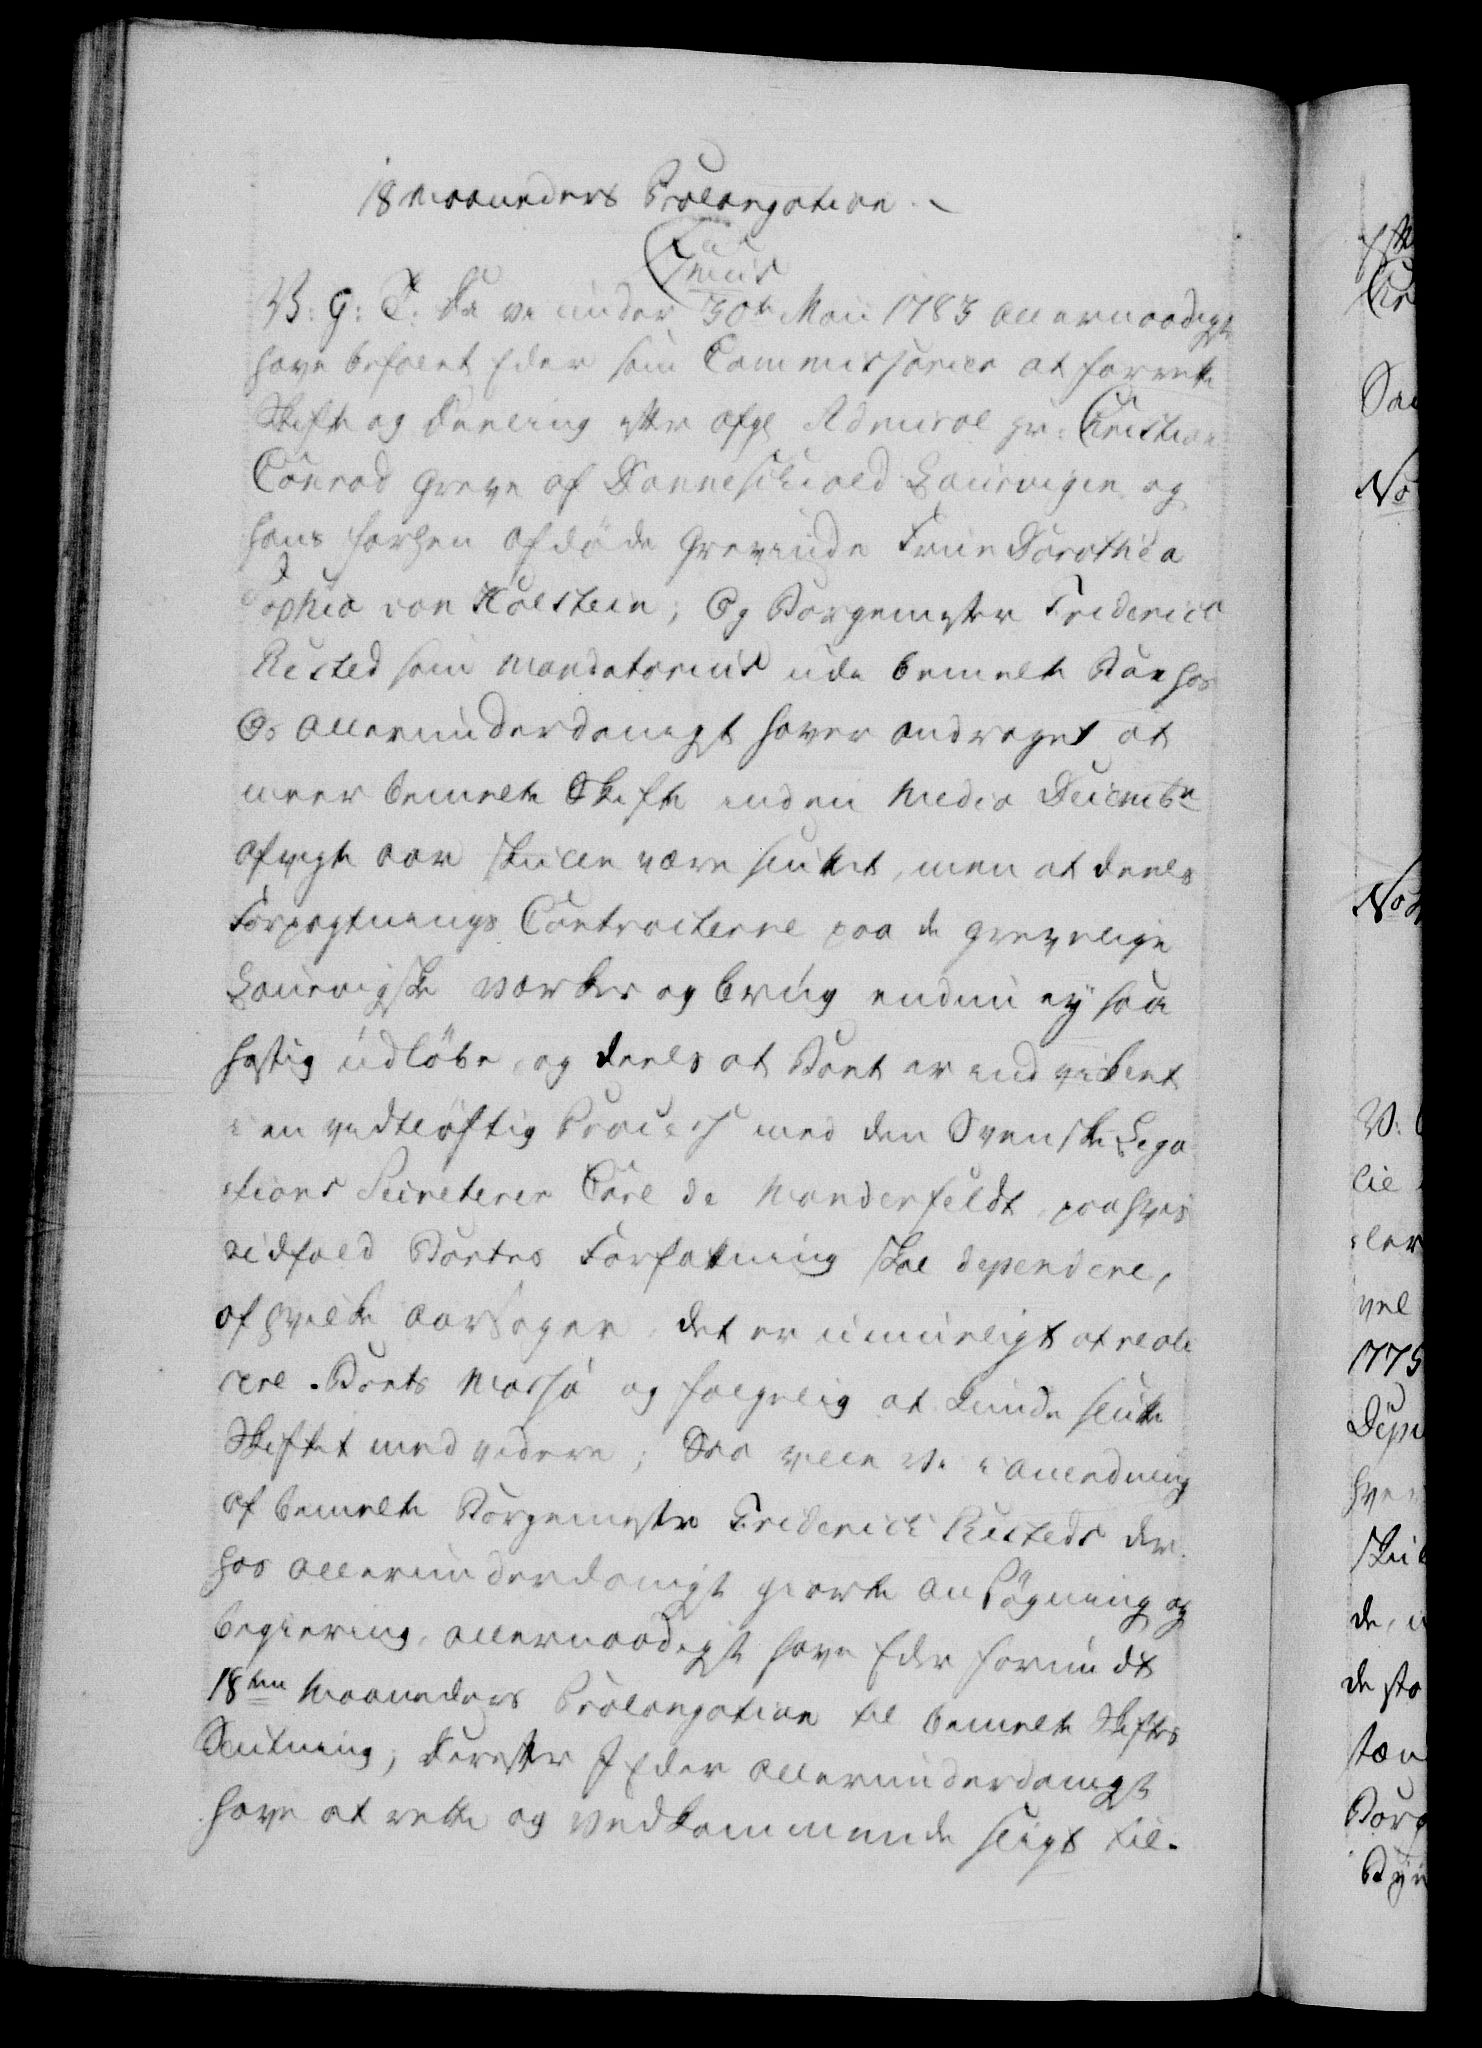 18 Maaneders Prolongation.
V: G: T: Da vi under 30te Maii 1783 allernaadigst
have befalet Eder som Commissarier at forrette
Skifte og Deeling efter afgl Admiral Hr: Christian
Conrad Greve af Danneschiold Laurvigen og
hans forhen afdöde Grevinde Frue Dorothea
Sophia von Holstein; Og Borgemester Friderich
Risted som Mandatarius udi bemelte Boe hos
Os allerunderdanigst haver andraget at
meer bemelte Skifte inden Medio Decembr
afvigte aar skulle være sluttet, men at deels
Forpagtnings Contracterne paa de grevelige
Laurvigske Værker og brug endnu ey saa
hastig udlöbe, og deels at Boet er indviklet
i en vidtlöftig Process med den Svenske Lega
tions Secreterer Carl de Manderfeldt, paa hvis
udfald Boetes Forfatning skal dependere,
af hvilke aarsager det er umueligt at reali
cere Boets Massa og fölgelig at kunde slutte
Skiftet med videre; Saa ville Vi i anledning
af bemelte Borgemester Friderich Risteds der
hos allerunderdanigst giorte ansögning og
begiering, allernaadigst have Eder forundt
18ten Maaneders Prolongation til bemelte Skiftes
Slutning; Derefter I Eder allerunderdanigst
have at rette og vedkommende sligt til-